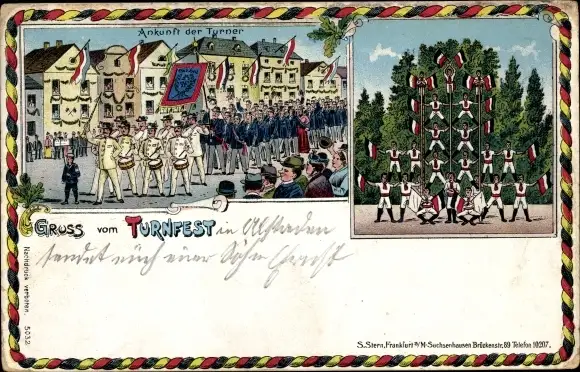 Ankunft der Turner
Gruss vom Turnfest in Alstaden
sendet euch euer Sohn Ernst
Nachdruck verboten. 5032.
S. Stern, Frankfurt a/M-Sachsenhausen Brückenstr. 69 Telefon 10207.